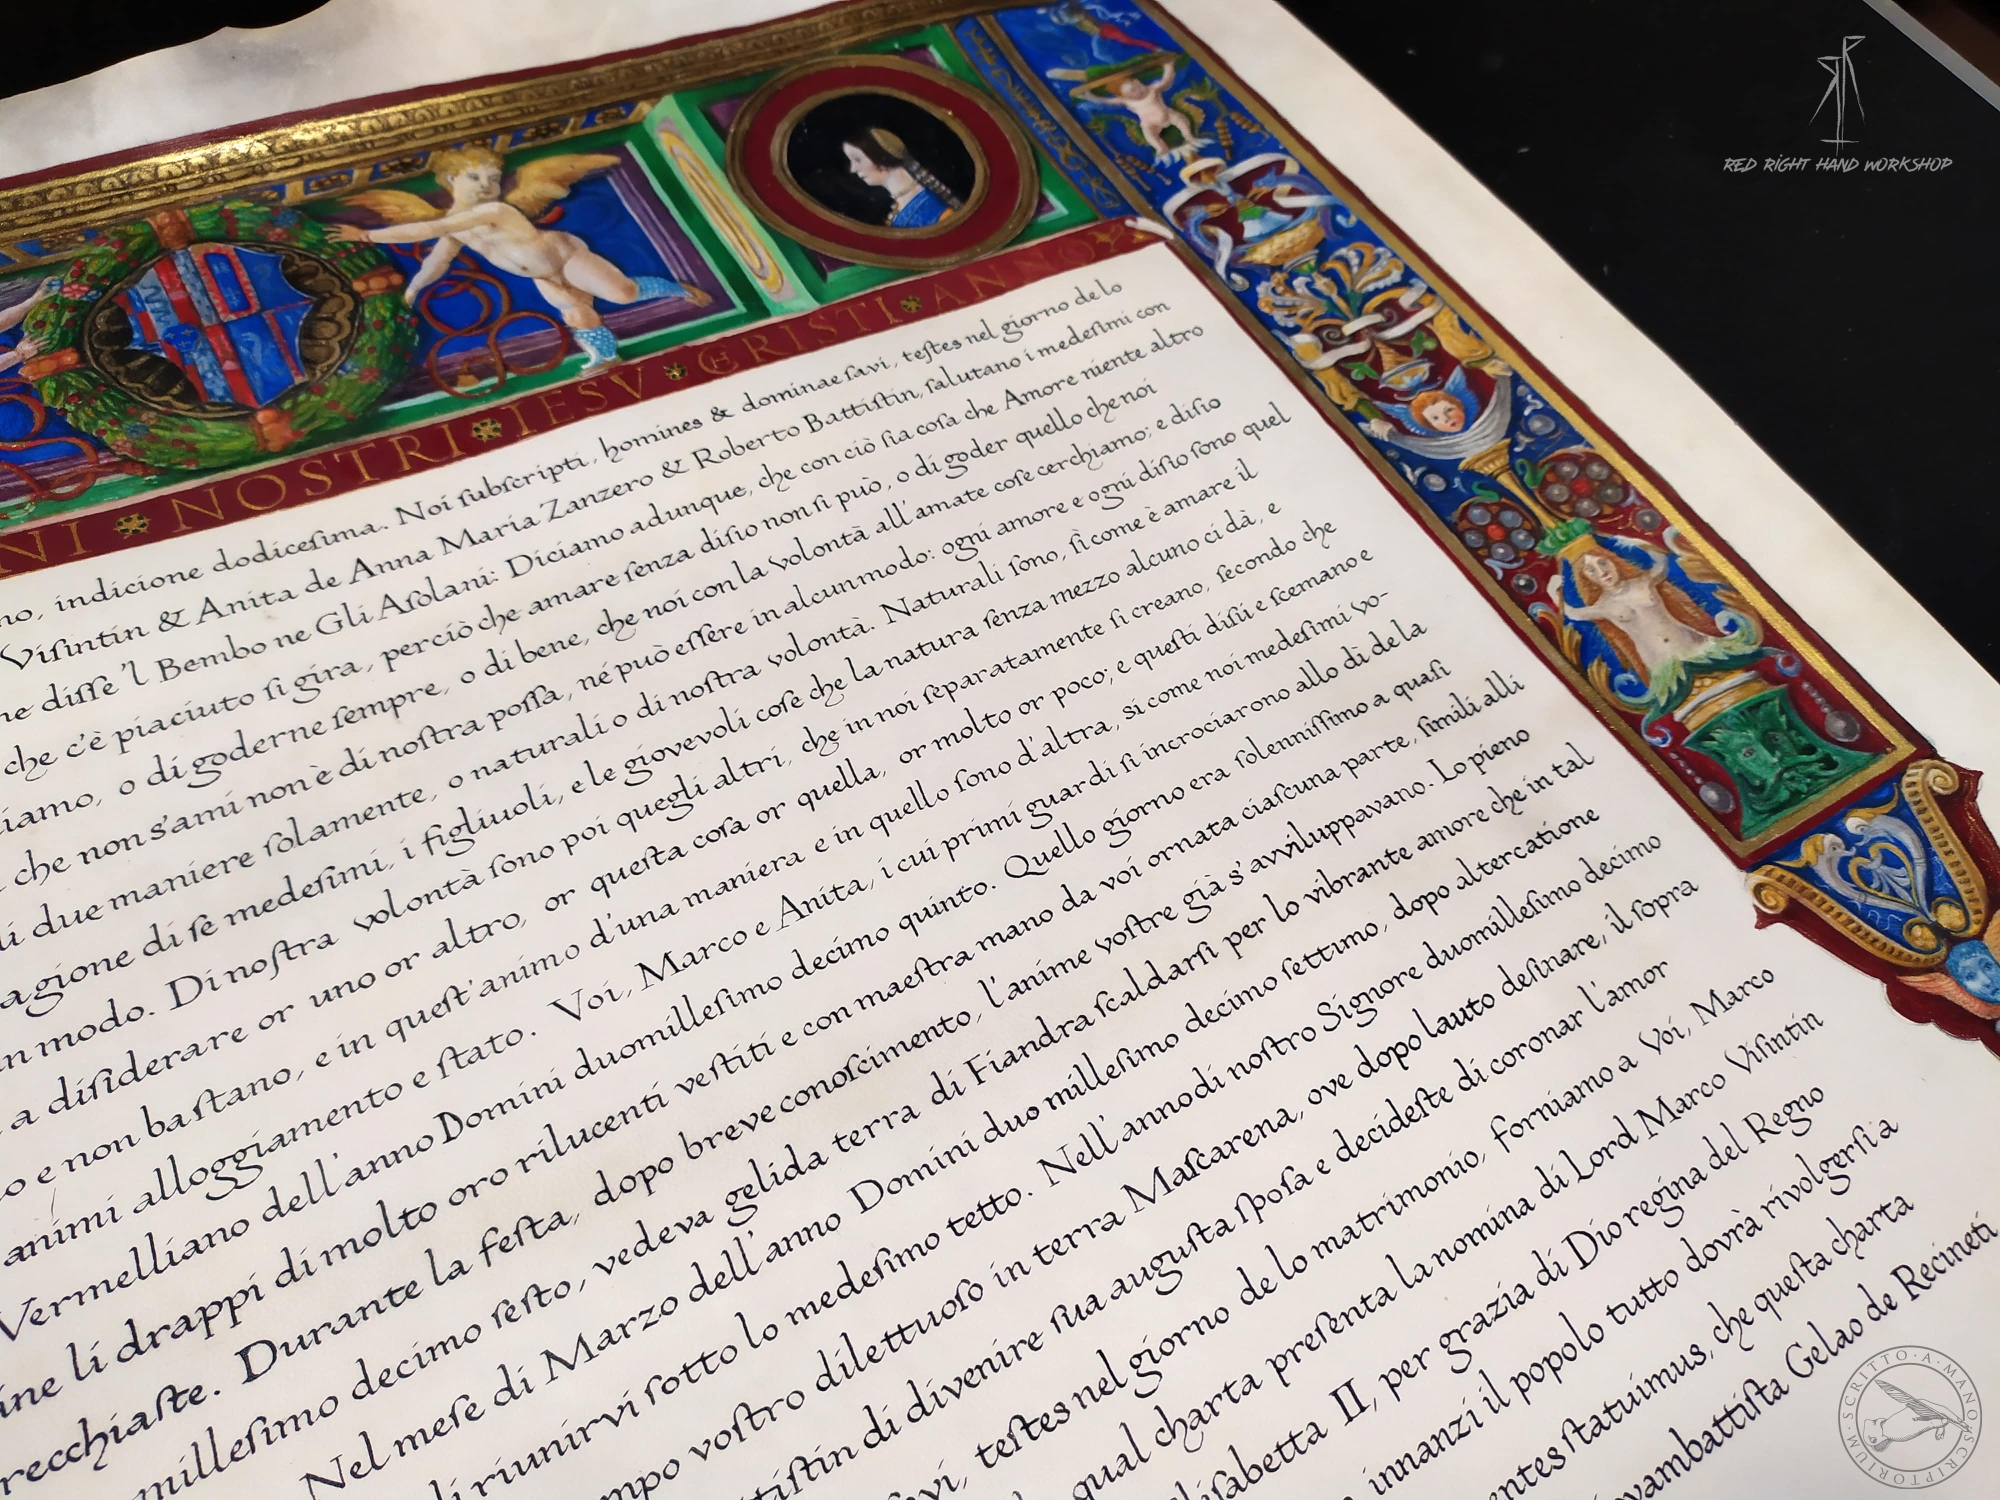 RED RIGHT HAND WORKSHOP
NI NOSTRI IESV CRISTI ANNO
no, indicione dodiceſima. Noi ſubſcripti, homines & dominae ſavi, teſtes nel giorno de lo
Viſintin & Anita de Anna Maria Zanzero & Roberto Battiſtin, ſalutano i medeſimi con
ne diſſe 'l Bembo ne Gli Aſolani: Diciamo adunque, che con ciò ſia coſa che Amore niente altro
che c'è piaciuto ſi gira, perciò che amare ſenza diſio non ſi può, o di goder quello che noi
iamo, o di goderne ſempre, o di bene, che noi con la volontà all'amate coſe cerchiamo; e diſio
che non s'ami non è di noſtra poſſa, né può eſſere in alcun modo: ogni amore e ogni diſio ſono quel
di due maniere ſolamente, o naturali o di noſtra volontà. Naturali ſono, ſì come è amare il
agione di ſe medeſimi, i figliuoli, e le giovevoli coſe che la natura ſenza mezzo alcuno ci dà, e
n modo. Di noſtra volontà ſono poi quegli altri, che in noi ſeparatamente ſi creano, ſecondo che
a diſiderare or uno or altro, or queſta coſa or quella, or molto or poco; e queſti diſii e ſcemano e
o e non baſtano, e in queſt'animo d'una maniera e in quello ſono d'altra, si come noi medeſimi vo-
animi alloggiamento e ſtato. Voi, Marco e Anita, i cui primi guardi ſi incrociarono allo dì de la
Vermelliano dell'anno Domini duomilleſimo decimo quinto. Quello giorno era ſolenniſſimo a quaſi
ine li drappi di molto oro rilucenti veſtiti e con maeſtra mano da voi ornata ciaſcuna parte, ſimili alli
recchiaſte. Durante la feſta, dopo breve conoſcimento, l'anime voſtre già s'avviluppavano. Lo pieno
milleſimo decimo ſeſto, vedeva gelida terra di Fiandra ſcaldarſi per lo vibrante amore che in tal
Nel meſe di Marzo dell'anno Domini duo milleſimo decimo ſettimo, dopo altercatione
di riunirvi ſotto lo medeſimo tetto. Nell'anno di noſtro Signore duomilleſimo decimo
mpo voſtro dilettuoſo in terra Maſcarena, ove dopo lauto deſinare, il ſopra
tiſtin di divenire ſua auguſta ſpoſa e decideſte di coronar l'amor
ſavi, teſtes nel giorno de lo matrimonio, forniamo a Voi, Marco
qual charta preſenta la nomina di Lord Marco Viſintin
liſabetta II, per grazia di Dio regina del Regno
innanzi il popolo tutto dovrà rivolgerſi a
entes ſtatuimus, che queſta charta
ovambattiſta Gelao de Recineti
SCRITTO·A·MANO·SCRIPTORIUM